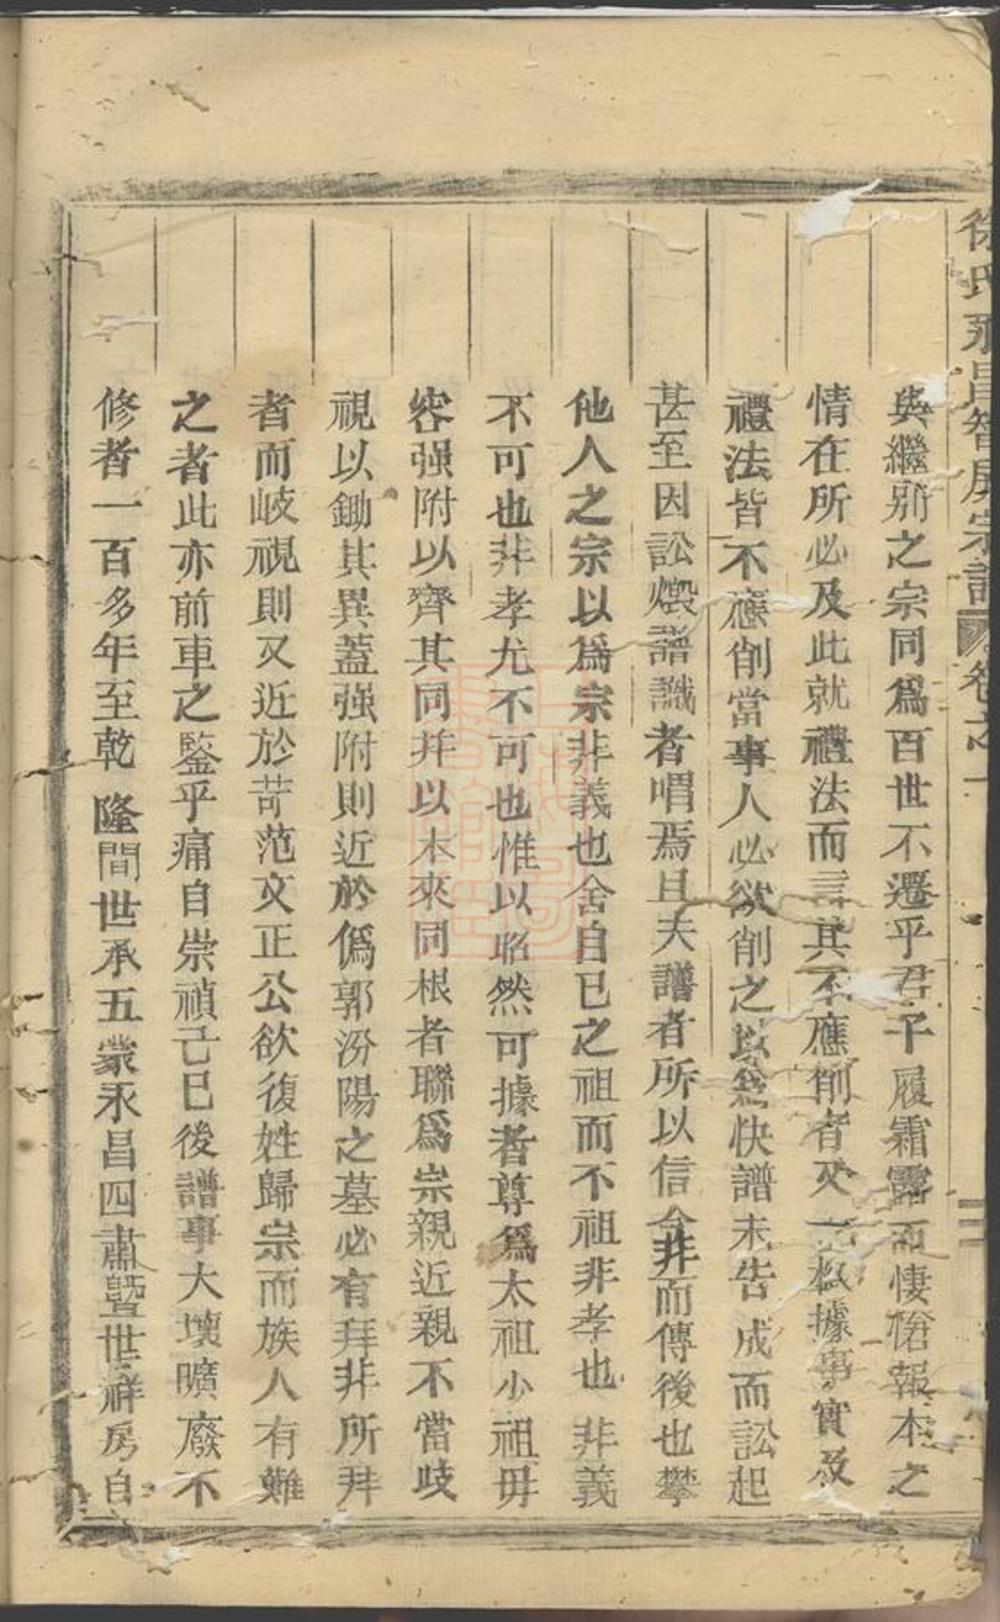 徐氏永昌智房宗譜 卷之一
與繼別之宗同爲百世不遷乎君子履霜露而悽愴報本之
情在所必及此就禮法而言其不應削者又一根據事實及
禮法皆不應削當事人必欲削之以爲快譜未告成而訟起
甚至因訟燬譜識者喟焉且夫譜者所以信今非而傳後也攀
他人之宗以爲宗非義也舍自已之祖而不祖非孝也非義
不可也非孝尤不可也惟以昭然可據者尊爲太祖少祖毋
容强附以齊其同并以本來同根者聯爲宗親近親不當歧
視以鋤其異蓋强附則近於僞郭汾陽之墓必有拜非所拜
者而岐視則又近於苛范文正公欲復姓歸宗而族人有難
之者此亦前車之鑒乎痛自崇禎己巳後譜事大壞曠廢不
修者一百多年至乾隆間世承五黨永昌四肅暨世祥房自